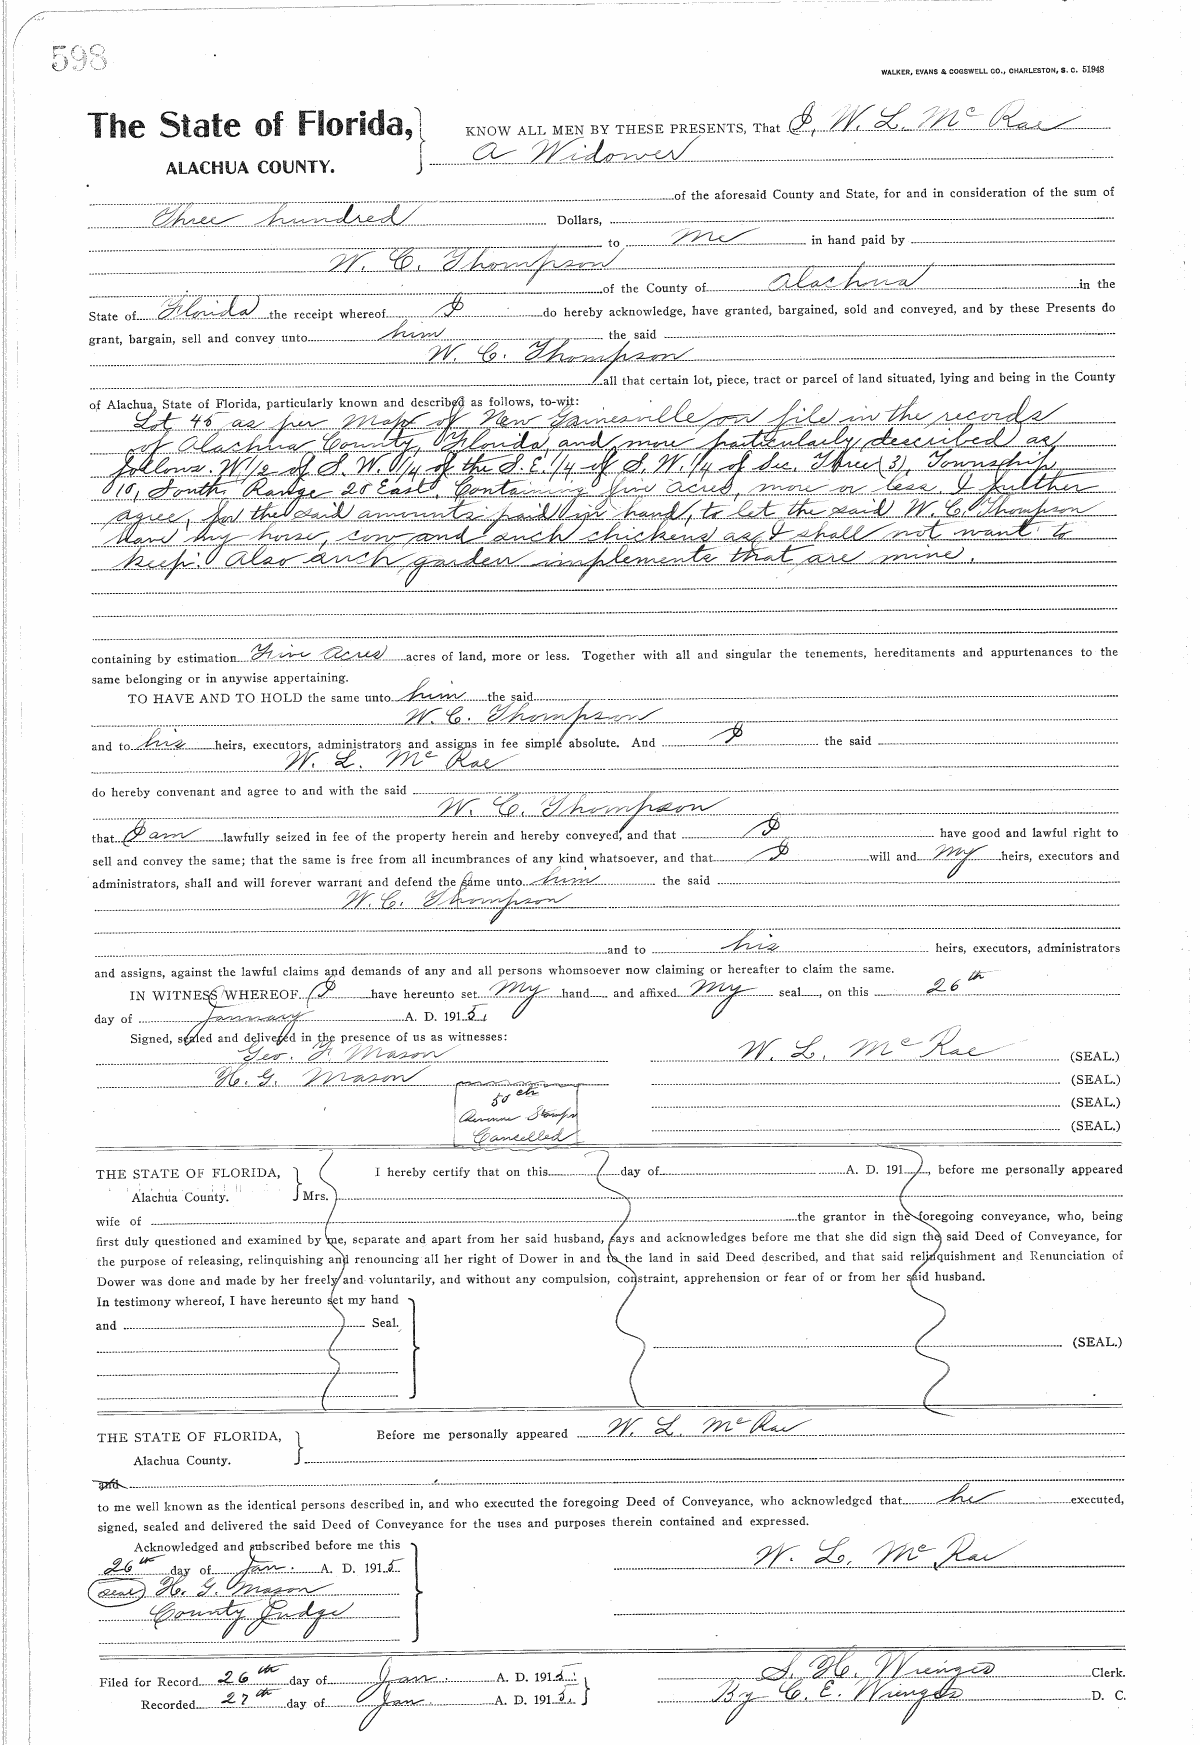 598
WALKER, EVANS & COGSWELL CO., CHARLESTON, S. C. 51948
The State of Florida, KNOW ALL MEN BY THESE PRESENTS, That I, W. L. McRae
ALACHUA COUNTY. A Widower
of the aforesaid County and State, for and in consideration of the sum of
Three hundred Dollars,
to me in hand paid by
W. C. Thompson
of the County of Alachua in the
State of Florida the receipt whereof I do hereby acknowledge, have granted, bargained, sold and conveyed, and by these Presents do
grant, bargain, sell and convey unto him the said
W. C. Thompson
all that certain lot, piece, tract or parcel of land situated, lying and being in the County
of Alachua, State of Florida, particularly known and described as follows, to-wit:
Lot 45 as per Map of New Gainesville on file in the records
of Alachua County, Florida, and more particularly described as
follows. W 1/2 of S. W. 1/4 of the S. E. 1/4 of S. W. 1/4 of Sec. Three (3), Township
10, South, Range 20 East. Containing five acres, more or less. I further
agree, for the said amounts paid in hand, to let the said W. C. Thompson
have my horse, cow and such chickens as I shall not want to
keep. Also such garden implements that are mine.
containing by estimation Five Acres acres of land, more or less. Together with all and singular the tenements, hereditaments and appurtenances to the
same belonging or in anywise appertaining.
TO HAVE AND TO HOLD the same unto him the said
W. C. Thompson
and to his heirs, executors, administrators and assigns in fee simple absolute. And I the said
W. L. McRae
do hereby convenant and agree to and with the said
W. C. Thompson
that I am lawfully seized in fee of the property herein and hereby conveyed, and that I have good and lawful right to
sell and convey the same; that the same is free from all incumbrances of any kind whatsoever, and that I will and my heirs, executors and
administrators, shall and will forever warrant and defend the same unto him the said
W. C. Thompson
and to his heirs, executors, administrators
and assigns, against the lawful claims and demands of any and all persons whomsoever now claiming or hereafter to claim the same.
IN WITNESS WHEREOF I have hereunto set my hand and affixed my seal, on this 26th
day of January A. D. 1915.
Signed, sealed and delivered in the presence of us as witnesses:
Geo. F. Mason W. L. McRae (SEAL.)
H. G. Mason (SEAL.)
50 cts (SEAL.)
Revenue Stamps
Cancelled (SEAL.)
THE STATE OF FLORIDA, I hereby certify that on this day of A. D. 191 , before me personally appeared
Alachua County. Mrs.
wife of the grantor in the foregoing conveyance, who, being
first duly questioned and examined by me, separate and apart from her said husband, says and acknowledges before me that she did sign the said Deed of Conveyance, for
the purpose of releasing, relinquishing and renouncing all her right of Dower in and to the land in said Deed described, and that said relinquishment and Renunciation of
Dower was done and made by her freely and voluntarily, and without any compulsion, constraint, apprehension or fear of or from her said husband.
In testimony whereof, I have hereunto set my hand
and Seal.
(SEAL.)
THE STATE OF FLORIDA, Before me personally appeared W. L. McRae
Alachua County.
and
to me well known as the identical persons described in, and who executed the foregoing Deed of Conveyance, who acknowledged that he executed,
signed, sealed and delivered the said Deed of Conveyance for the uses and purposes therein contained and expressed.
Acknowledged and subscribed before me this
26th day of Jan. A. D. 1915. W. L. McRae
(seal) H. G. Mason
County Judge
Filed for Record 26th day of Jan. A. D. 1915. S. H. Wienges Clerk.
Recorded 27th day of Jan A. D. 1915. By C. E. Wienges D. C.